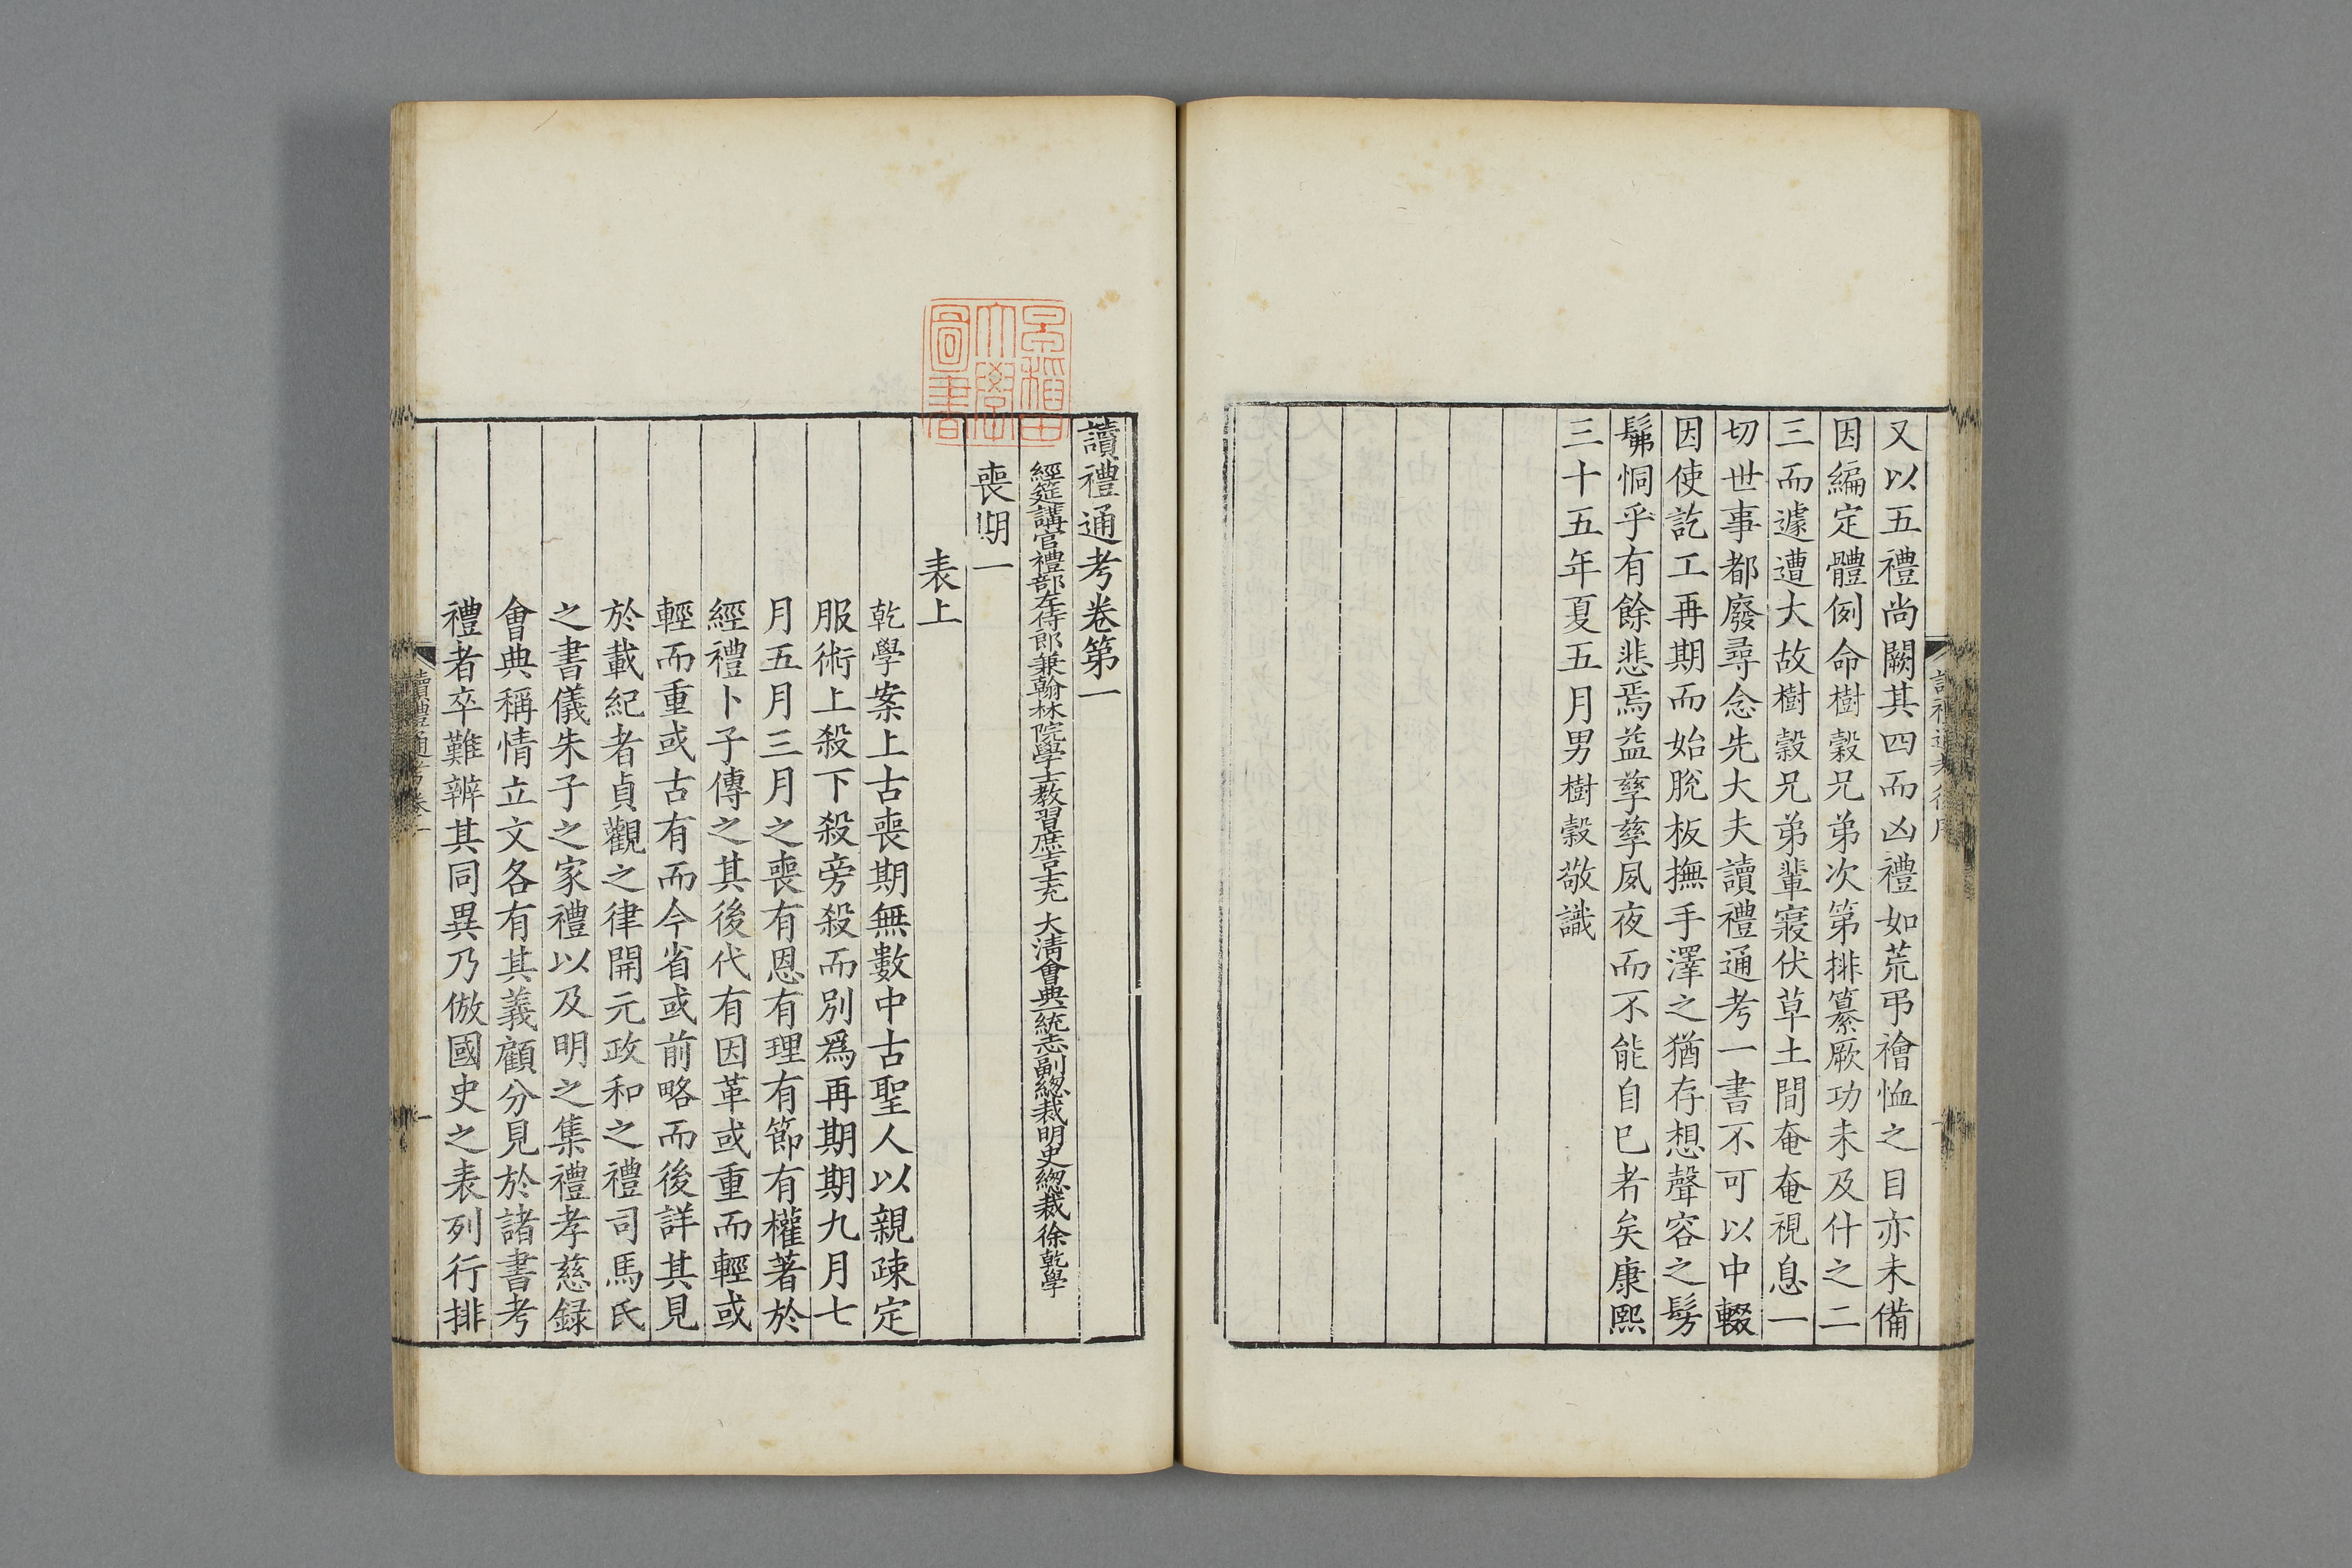 又以五禮尚闕其四而凶禮如荒弔禬恤之目亦未備
因編定體例命樹穀兄弟次第排纂厥功未及什之二
三而遽遭大故樹穀兄弟輩寢伏草土間奄奄視息一
切世事都廢尋念先大夫讀禮通考一書不可以中輟
因使訖工再期而始脫板撫手澤之猶存想聲容之髣
髴恫乎有餘悲焉益孳孳夙夜而不能自已者矣康熙
三十五年夏五月男樹穀敬識
讀禮通考卷第一
經筵講官禮部左侍郎兼翰林院學士教習庶吉士充 大清會典一統志副總裁明史總裁徐乾學
喪期一
表上
乾學案上古喪期無數中古聖人以親疎定
服術上殺下殺旁殺而別爲再期期九月七
月五月三月之喪有恩有理有節有權著於
經禮卜子傳之其後代有因革或重而輕或
輕而重或古有而今省或前略而後詳其見
於載紀者貞觀之律開元政和之禮司馬氏
之書儀朱子之家禮以及明之集禮孝慈録
會典稱情立文各有其義顧分見於諸書考
禮者卒難辨其同異乃倣國史之表列行排
讀禮通考卷一
一
早稲田大學圖書